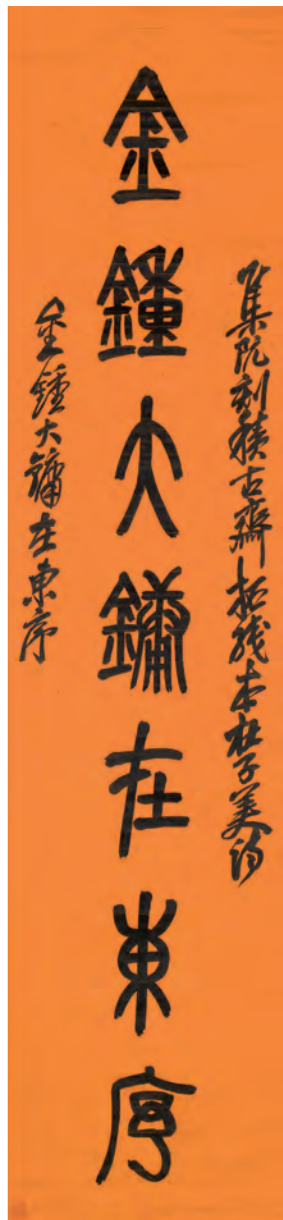 集阮刻積古齋拓殘本杜子美詩
金鍾大鏞在東序
金鍾大鏞在東序